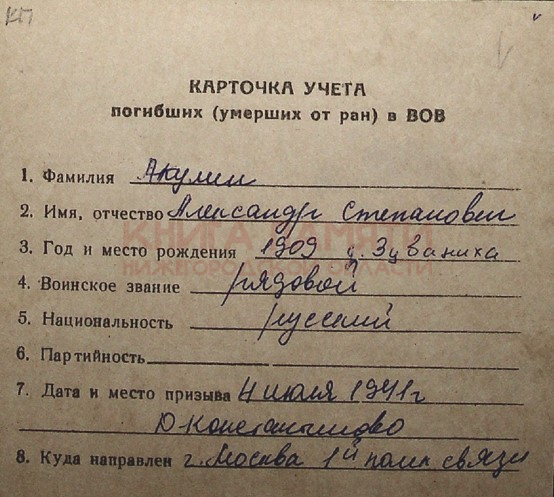 КП
КАРТОЧКА УЧЕТА
погибших (умерших от ран) в ВОВ
1. Фамилия Акулин
2. Имя, отчество Александр Степанович
КНИГА ПАМЯТИ
3. Год и место рождения 1909 д. Зуваниха
НИЖЕГОРОДСКОЙ ОБЛАСТИ
4. Воинское звание рядовой
5. Национальность русский
6. Партийность
7. Дата и место призыва 4 июля 1941 г
Ю-Константиново
8. Куда направлен г. Москва 1й полк связи